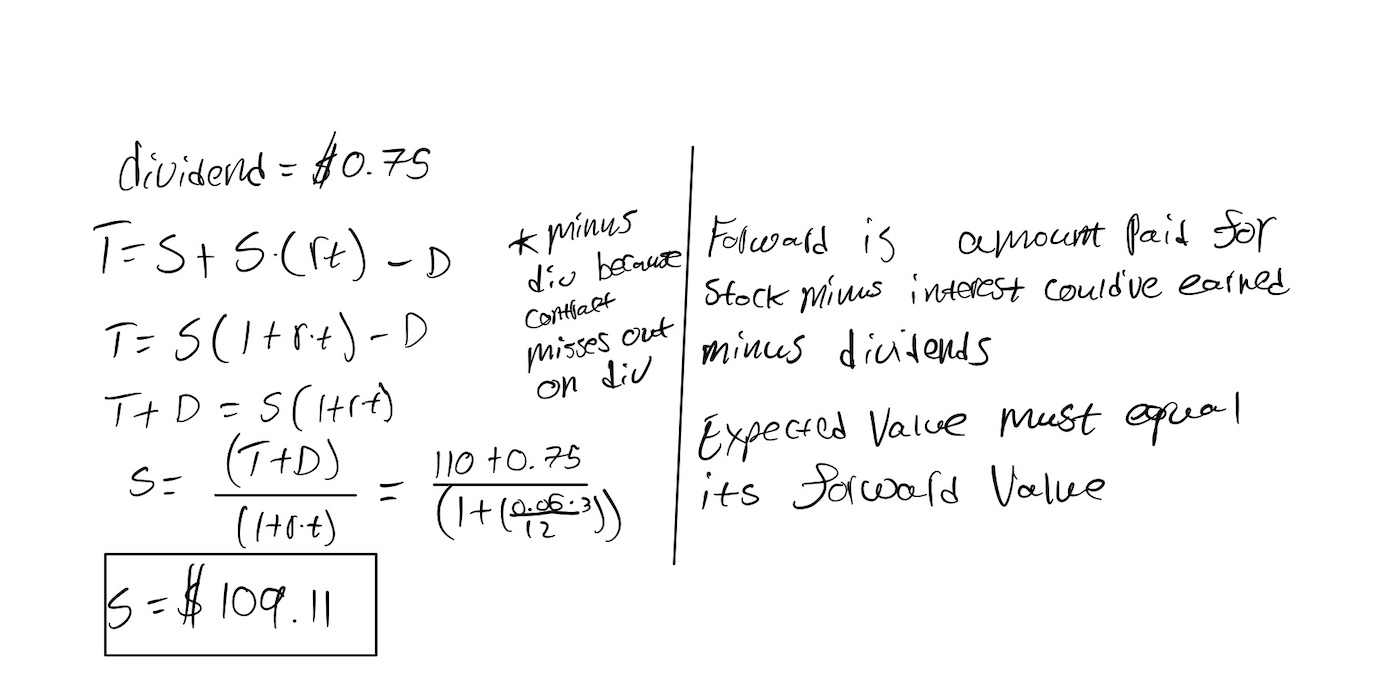 dividend = $0.75
T = S + S·(rt) - D
T = S(1 + r·t) - D
T + D = S(1+rt)
S = (T+D) / (1+r·t) = 110 + 0.75 / (1+(0.06·3 / 12))
S = $109.11
* minus
div because
contract
misses out
on div
Forward is amount paid for
stock minus interest could've earned
minus dividends
Expected Value must equal
its forward Value